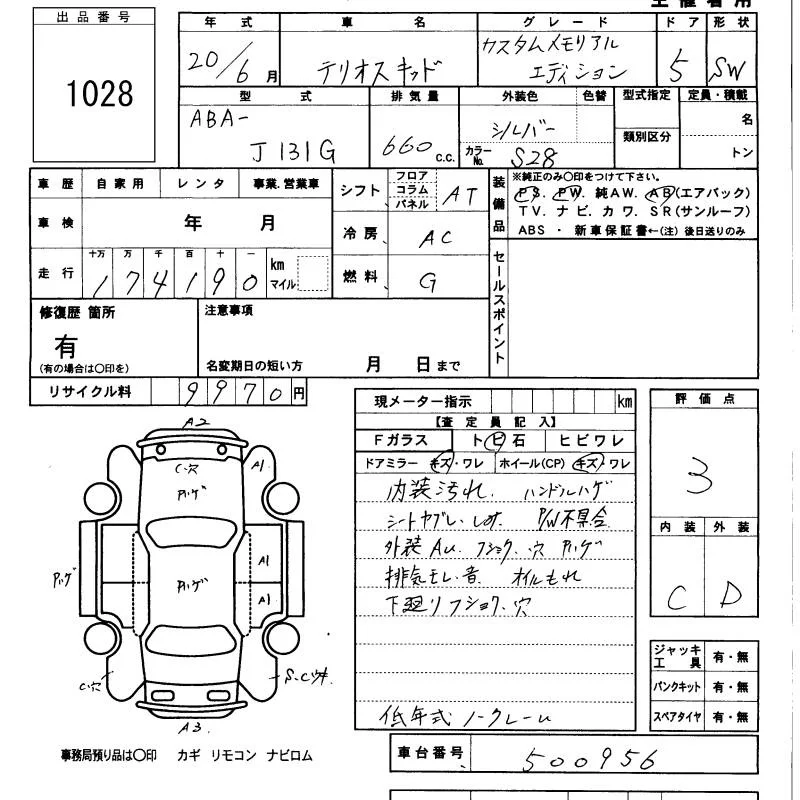 出品番号
1028
年式 車名 グレード ドア 形状
20/6月 テリオスキッド カスタムメモリアルエディション 5 SW
型式 排気量 外装色 色替 型式指定 定員・積載
ABA-
J131G 660c.c. シルバー 類別区分 名
カラーNo. S28 トン
車歴 自家用 レンタ 事業.営業車
シフト フロア コラム パネル AT
装備品 ※純正のみ○印をつけて下さい。
PS. PW. 純AW. AB(エアバック)
TV. ナビ. カワ. SR(サンルーフ)
ABS ・ 新車保証書←(注) 後日送りのみ
車検 年 月
冷房 AC
走行 十万 万 千 百 十 一
174190 km マイル
燃料 G
セールスポイント
修復歴 箇所
有
(有の場合は○印を)
注意事項
名変期日の短い方 月 日まで
リサイクル料 9970円
現メーター指示 km
評価点
3
【査定員記入】
Fガラス トビ石 ヒビワレ
ドアミラー キズ・ワレ ホイール(CP) キズ・ワレ
内装汚れ. ハンドルハゲ
シートヤブレ. P/W不具合
外装 フショク. 穴
排気モレ音 オイルもれ
下廻りフショク.穴
低年式 ノークレーム
内装 外装
C D
A2
C.穴
A1
A1
A1
C.穴
A3
ジャッキ工具 有・無
パンクキット 有・無
スペアタイヤ 有・無
事務局預り品は○印 カギ リモコン ナビロム
車台番号 500956